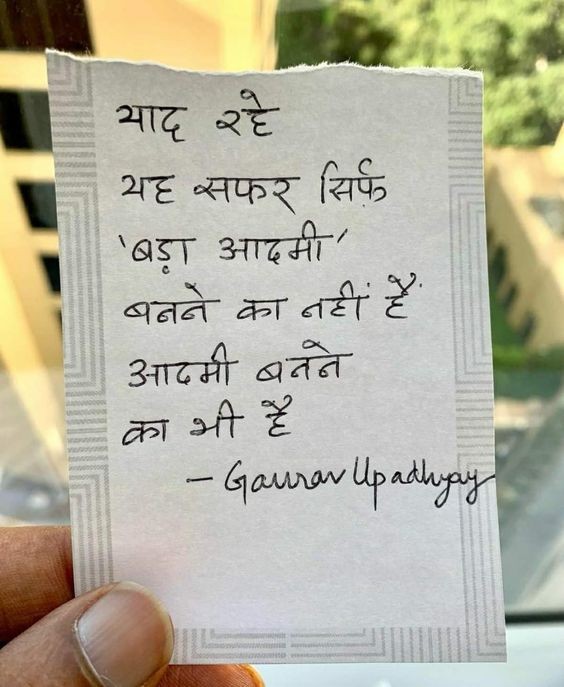 याद रहे
यह सफर सिर्फ़
'बड़ा आदमी'
बनने का नहीं हैं
आदमी बनने
का भी है
- Gaurav Upadhyay